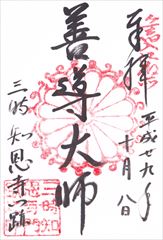 奉拝
平成廿九年
十月八日
善導大師
三時知恩寺門跡